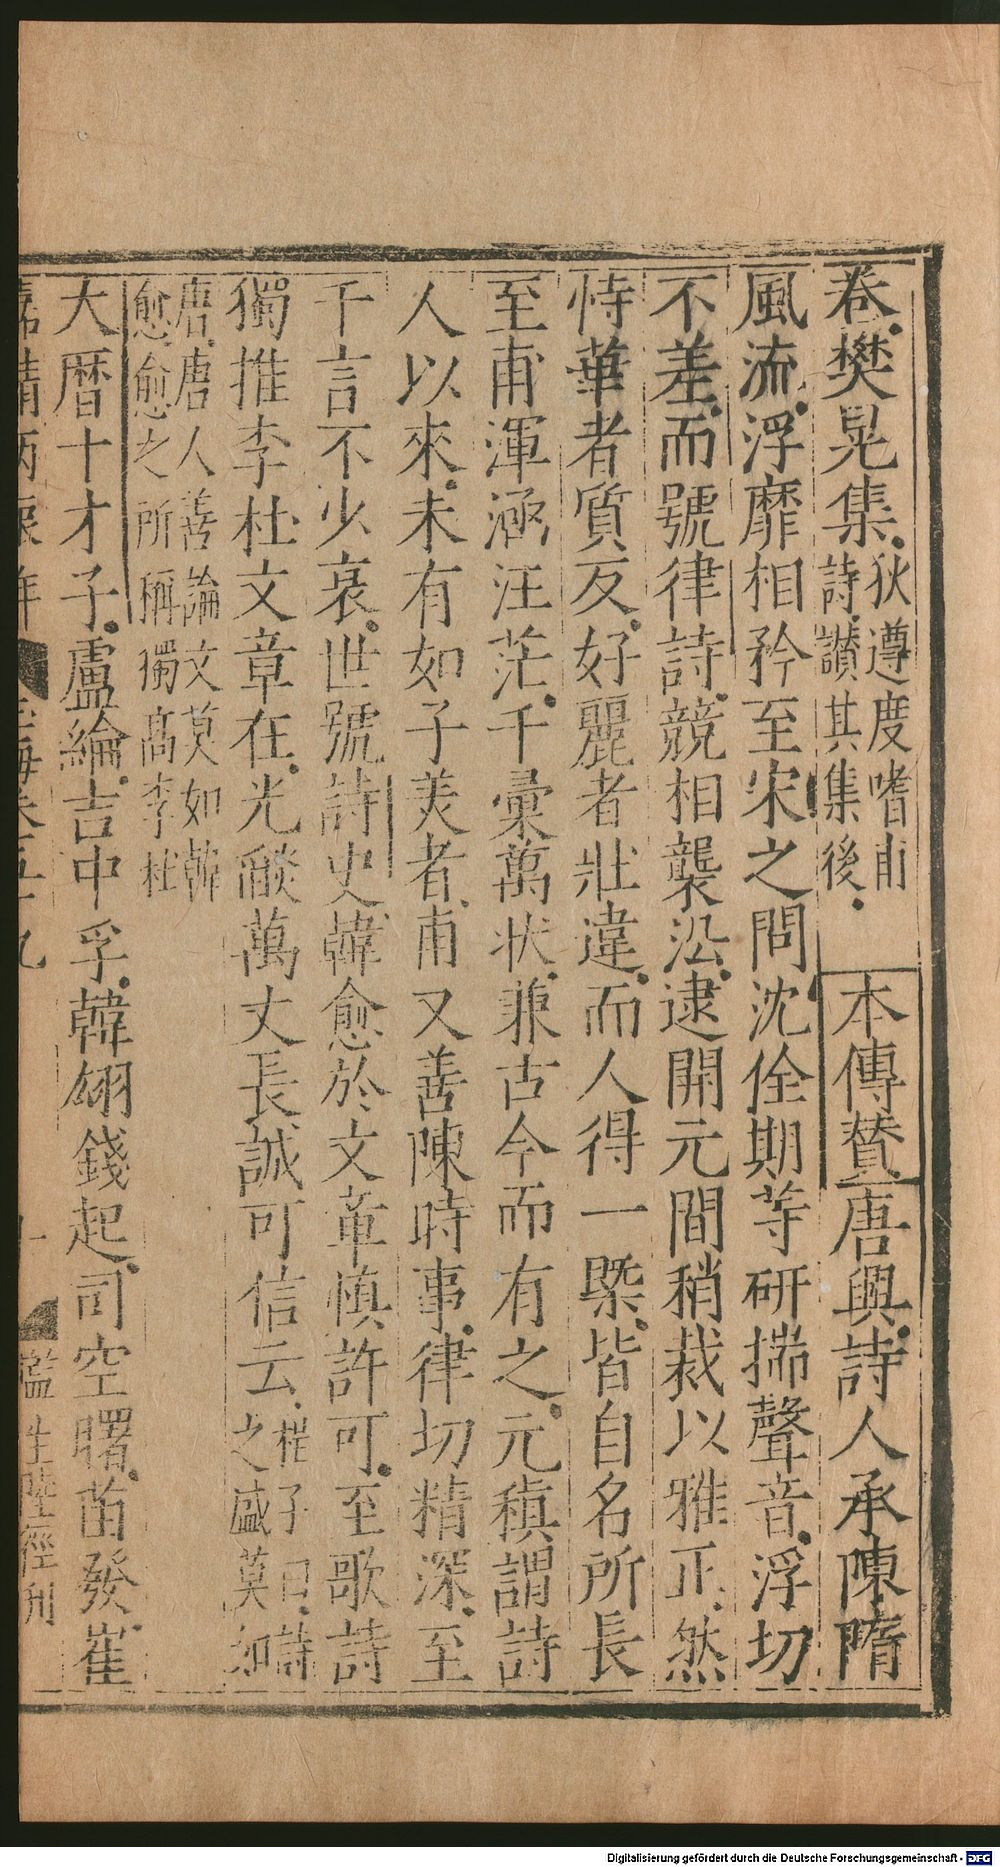 卷樊晃集狄遵度嗜甫詩讚其集後本傳贊唐興詩人承陳隋
風流浮靡相矜至宋之問沈佺期等研揣聲音浮切
不差而號律詩競相襲㳂逮開元間稍裁以雅正然
恃華者質反好麗者壯違而人得一槩皆自名所長
至甫渾涵汪茫千彙萬狀兼古今而有之元稹謂詩
人以來未有如子美者甫又善陳時事律切精深至
千言不少衰世號詩史韓愈於文章慎許可至歌詩
獨推李杜文章在光燄萬丈長誠可信云程子曰詩之盛莫如
唐唐人善論文莫如韓愈愈之所稱獨高李杜
大曆十才子盧綸吉中孚韓翃錢起司空曙苗發崔
嘉靖丙辰年 玉海卷五十九 十 監生陸經刊
Digitalisierung gefördert durch die Deutsche Forschungsgemeinschaft - DFG